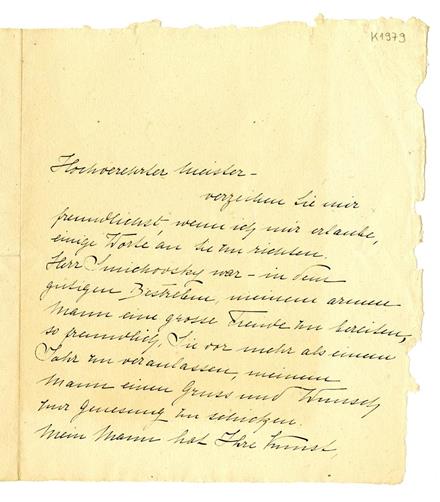 K1979
Hochverehrter Meister –
verzeihen Sie mir
freundlichst, wenn ich mir erlaube,
einige Worte an Sie zu richten.
Herr Smichovsky war – in dem
gutigen Bestreben, meinem armen
Mann eine grosse Freude zu bereiten,
so freundlich, Sie vor mehr als einem
Jahr zu veranlassen, meinem
Mann einen Gruss und Wunsch
zur Genesung zu schicken.
Mein Mann hat Ihre Kunst,